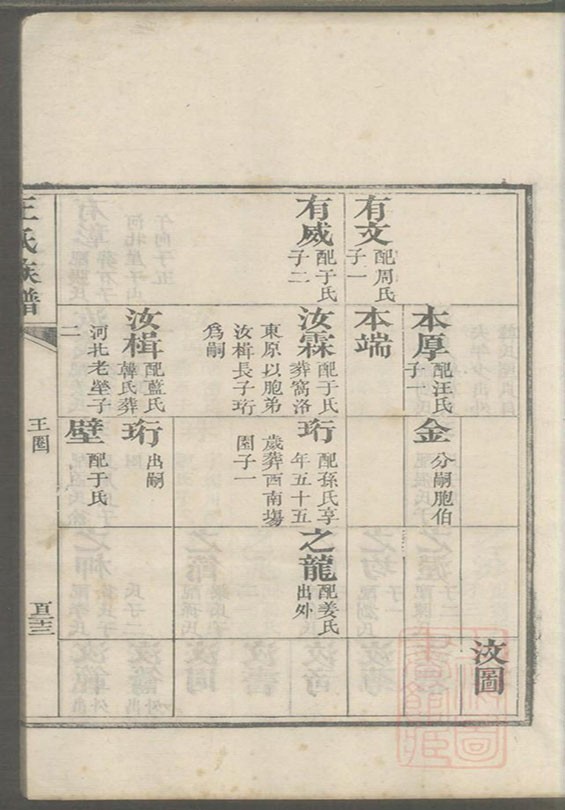 汝圖
本厚 配汪氏
子一
金 分嗣胞伯
有文 配周氏
子一
本端
有威 配于氏
子二
汝霖 配于氏
葬窩洛
東原以胞弟
汝楫長子珩
為嗣
珩 配孫氏享
年五十五
歲葬西南塲
園子一
之龍 配姜氏
出外
汝楫 配藍氏
韓氏葬
河北老塋子
二
珩 出嗣
壁 配于氏
王氏族譜
王圈